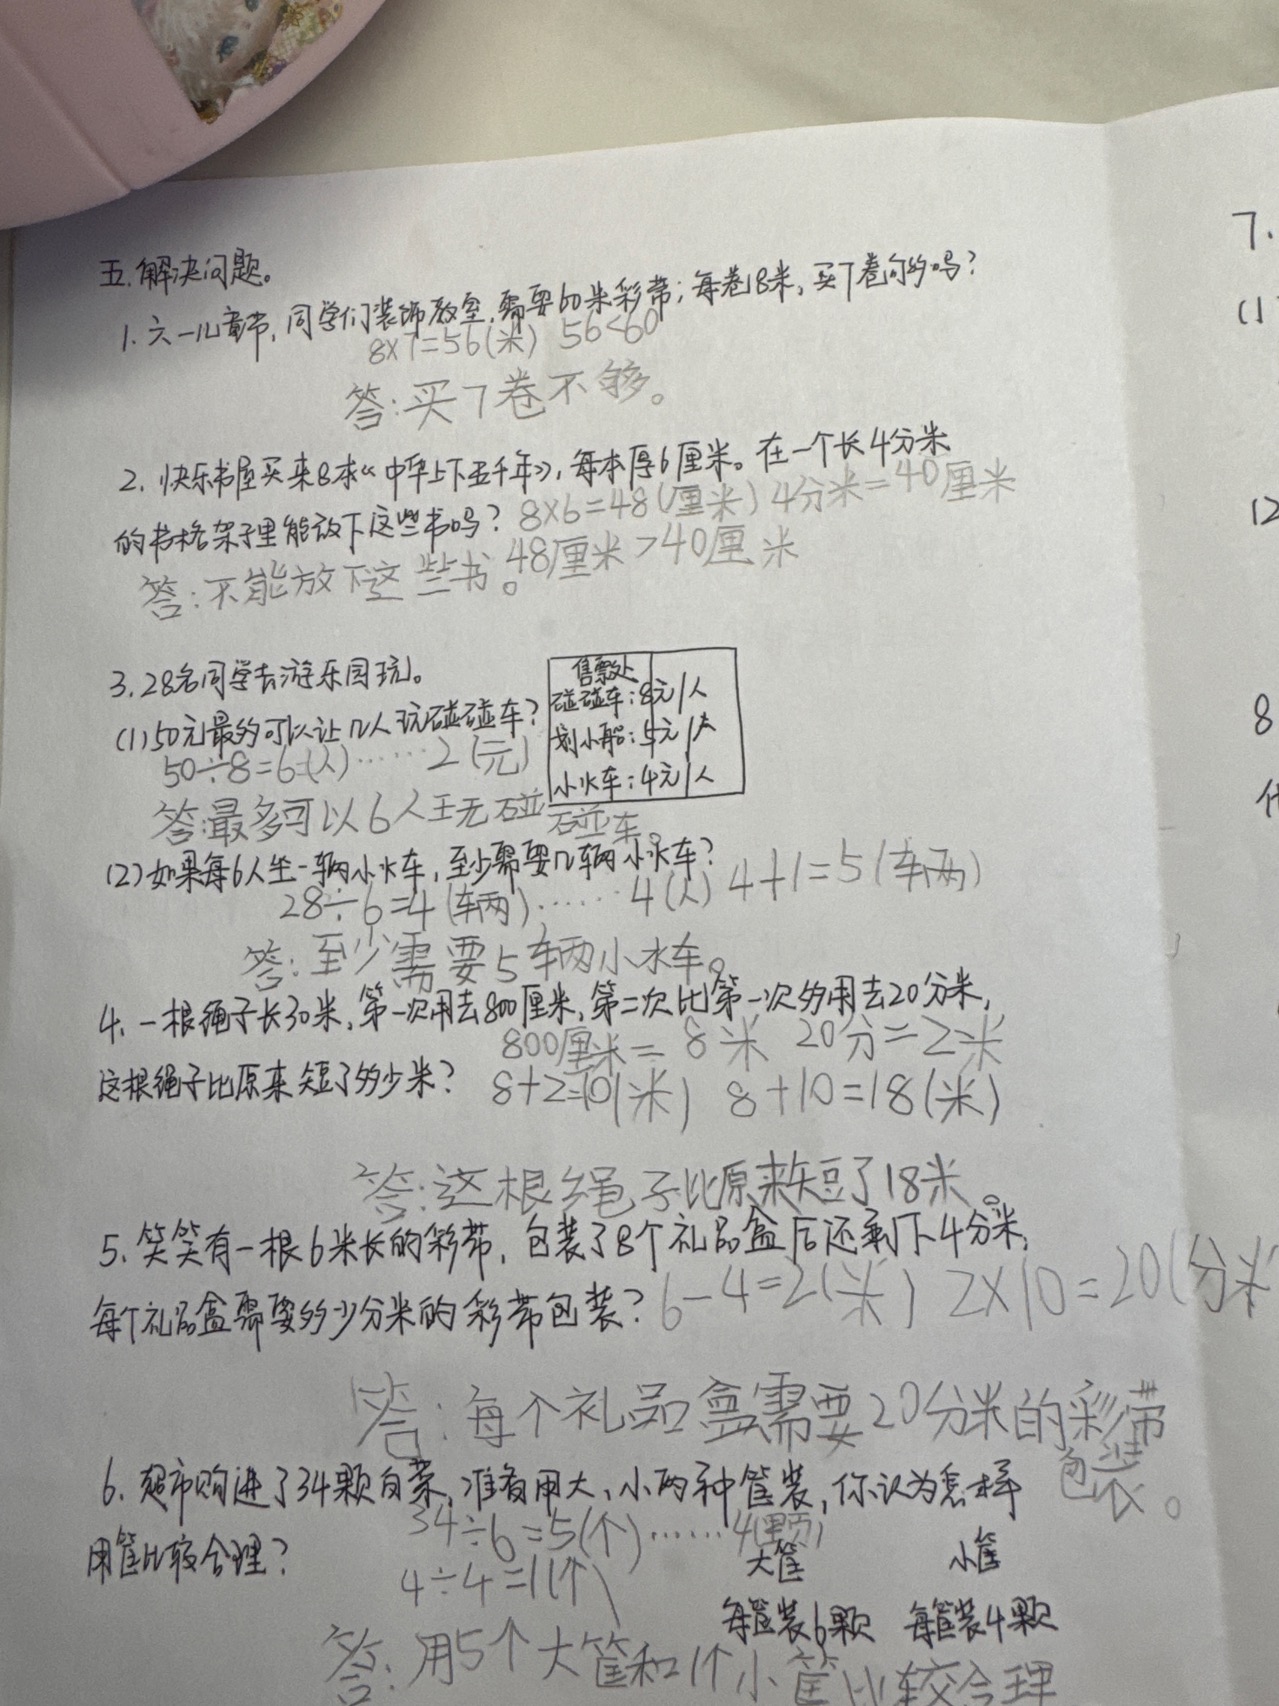 五.解决问题。
1.六一儿童节,同学们装饰教室,需要60米彩带;每卷8米,买7卷够吗?
8×7=56(米) 56<60
答:买7卷不够。
2.快乐书屋买来8本《中华上下五千年》,每本厚6厘米。在一个长4分米
的书格架子里能放下这些书吗?
8×6=48(厘米) 4分米=40厘米
48厘米>40厘米
答:不能放下这些书。
3.28名同学去游乐园玩。
售票处
碰碰车:8元/人
划小船:5元/人
小火车:4元/人
(1)50元最多可以让几人玩碰碰车?
50÷8=6(人)……2(元)
答:最多可以6人玩碰
碰车。
(2)如果每6人坐一辆小火车,至少需要几辆小火车?
28÷6=4(辆)……4(人) 4+1=5(辆)
答:至少需要5辆小水车。
4.一根绳子长30米,第一次用去800厘米,第二次比第一次多用去20分米,
这根绳子比原来短了多少米?
800厘米=8米 20分=2米
8+2=10(米) 8+10=18(米)
答:这根绳子比原来短了18米。
5.笑笑有一根6米长的彩带,包装了8个礼品盒后还剩下4分米,
每个礼品盒需要多少分米的彩带包装?
6-4=2(米) 2×10=20(分米
答:每个礼品盒需要20分米的彩带
包装。
6.超市购进了34颗白菜,准备用大、小两种筐装,你认为怎样
用筐比较合理?
34÷6=5(个)……4(颗)
4÷4=1(个)
大筐 小筐
每筐装6颗 每筐装4颗
答:用5个大筐和1个小筐比较合理
7.
(1
(2
8